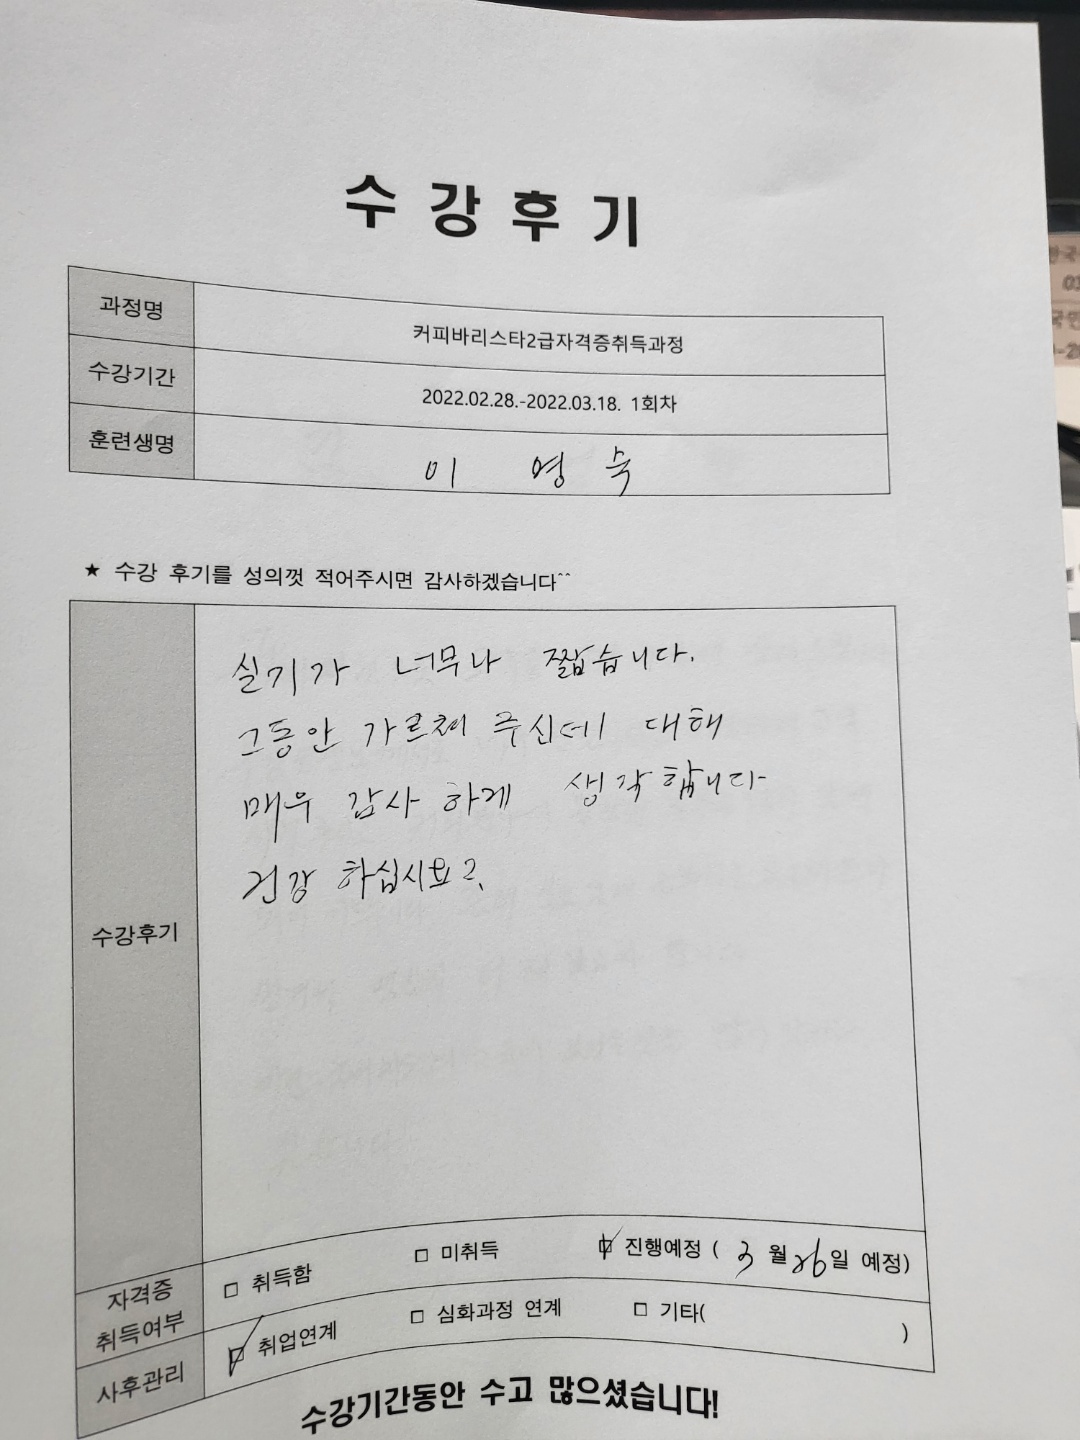 수강후기
과정명 커피바리스타2급자격증취득과정
수강기간 2022.02.28.-2022.03.18. 1회차
훈련생명 이 영 숙
★ 수강 후기를 성의껏 적어주시면 감사하겠습니다^^
실기가 너무나 짧습니다.
그동안 가르쳐 주신데 대해
매우 감사 하게 생각합니다
수강후기
건강 하십시요?.
자격증 취득여부 □ 취득함 □ 미취득 ☑ 진행예정 ( 3 월 26일 예정)
사후관리 ☑ 취업연계 □ 심화과정 연계 □ 기타( )
수강기간동안 수고 많으셨습니다!